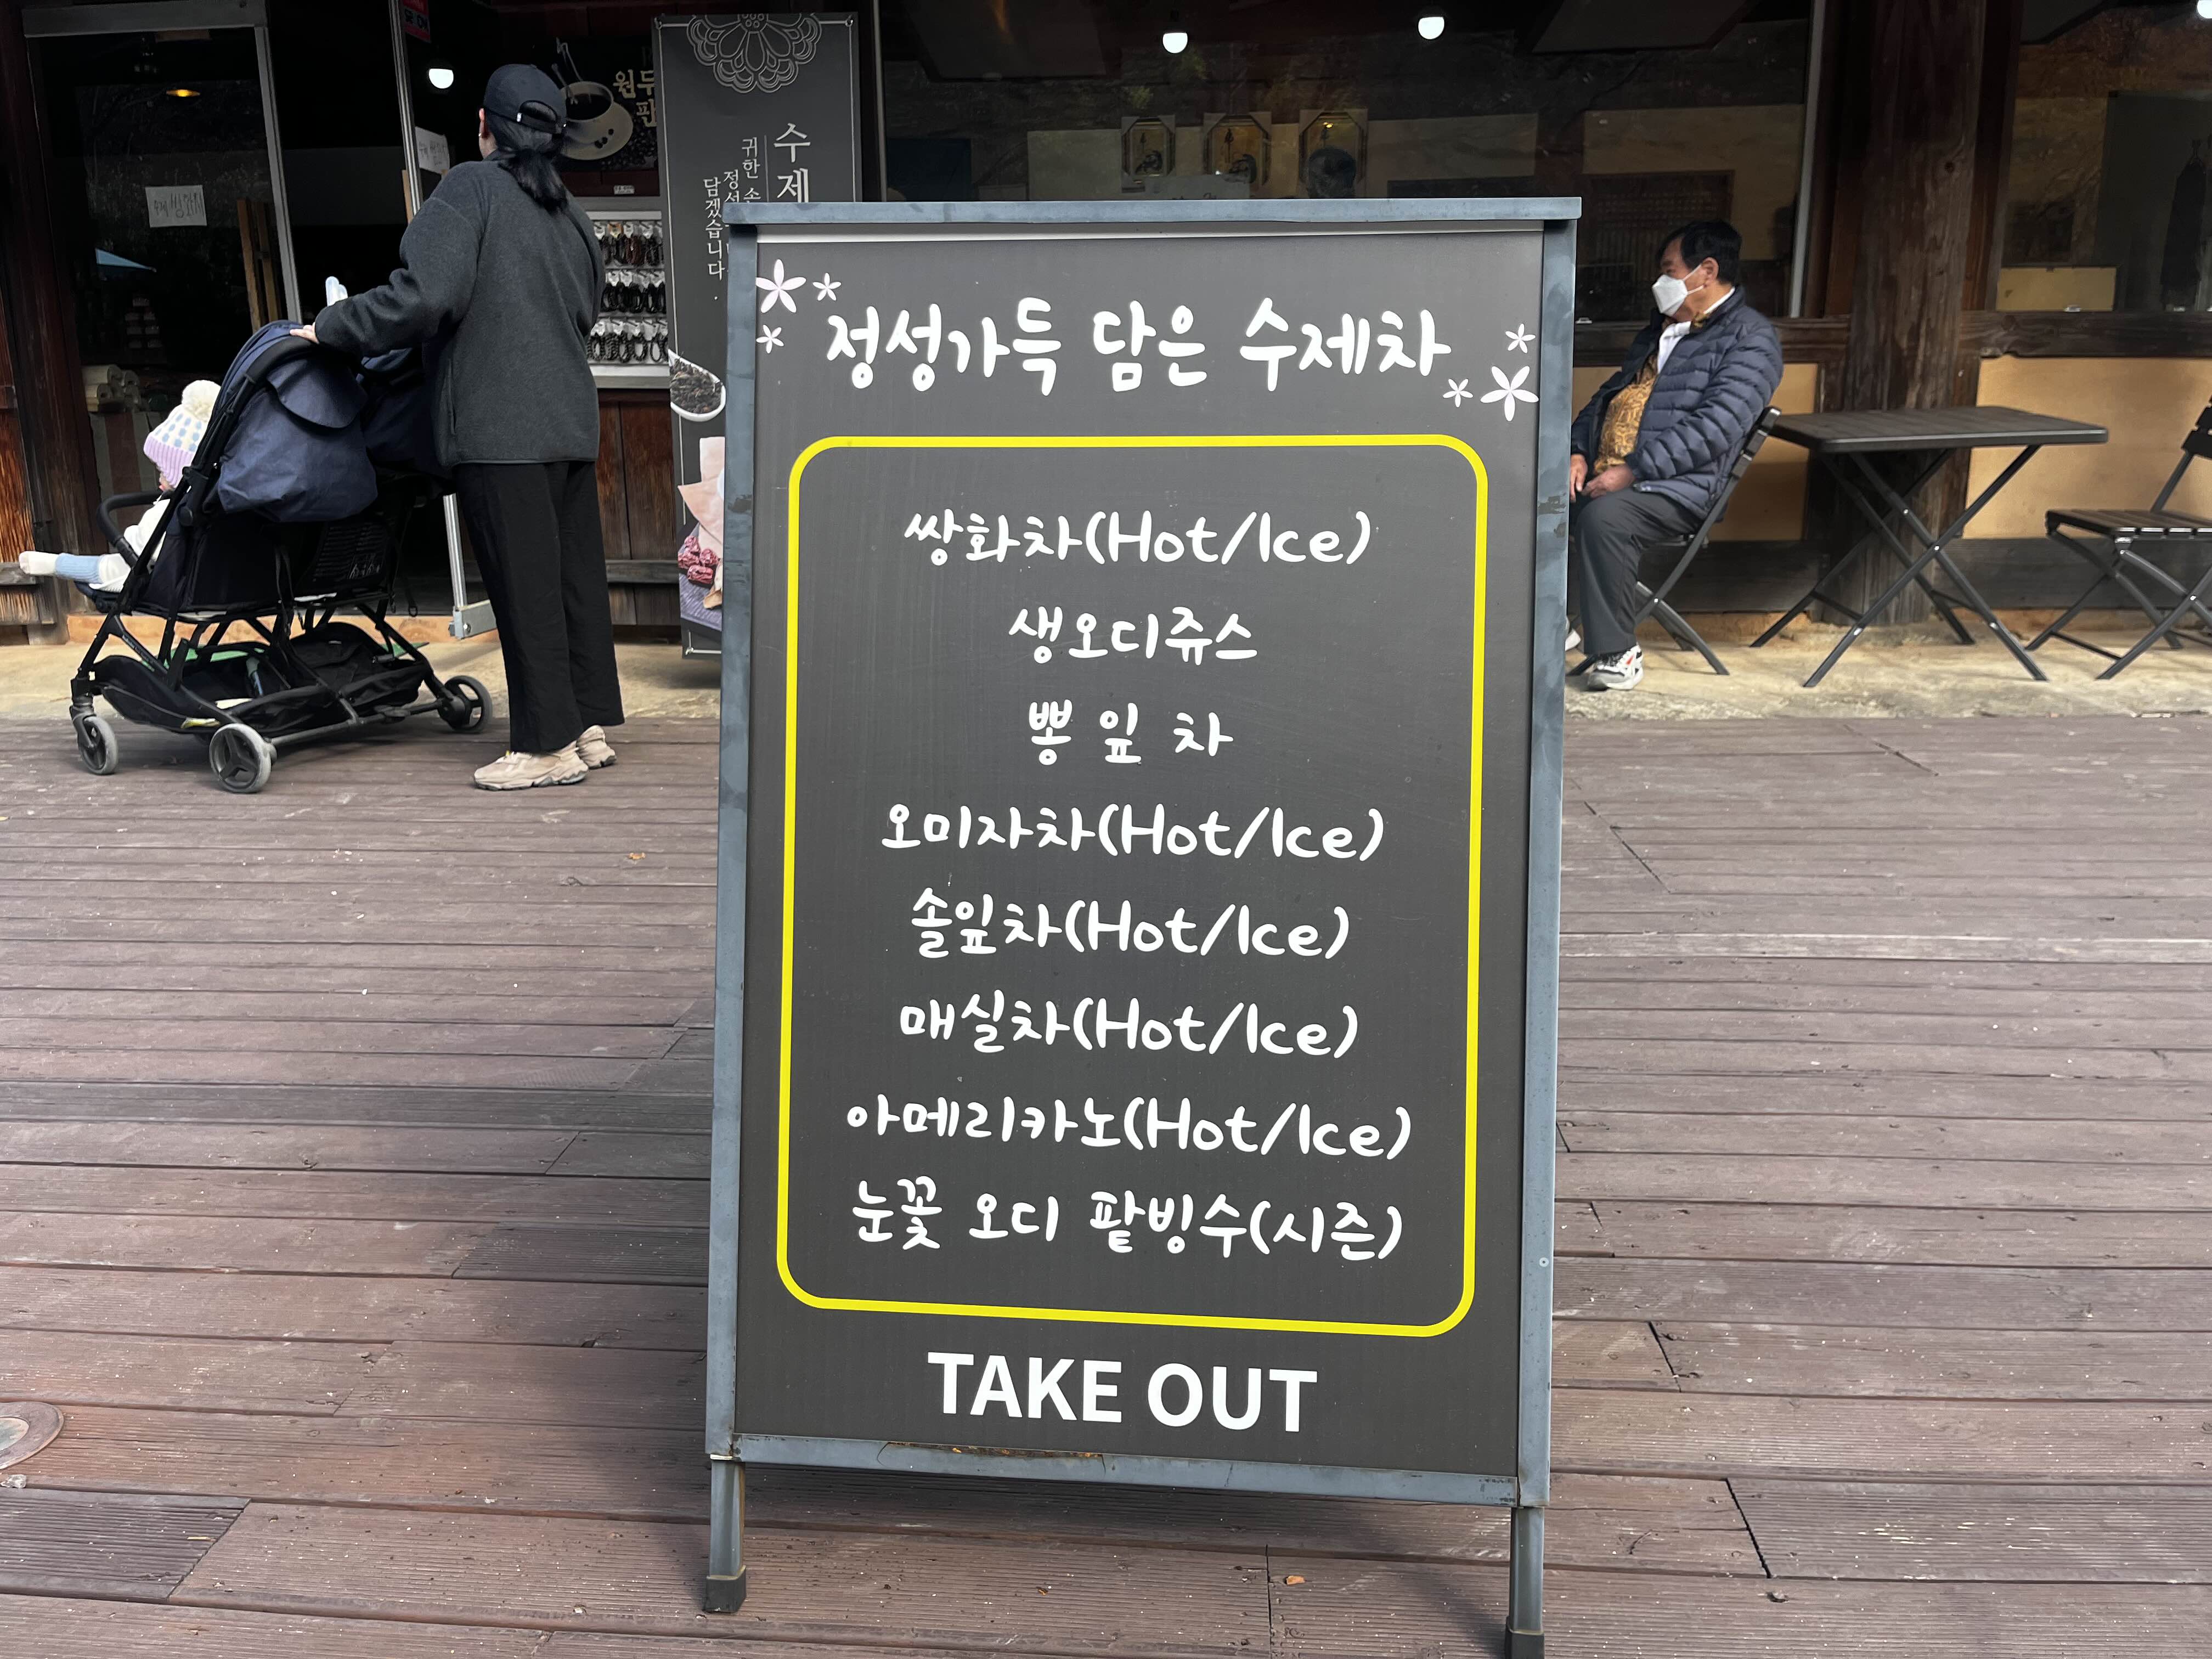 원두
판
수제
귀한 손
정성
담겠습니다.
수제 쌍화차
정성가득 담은 수제차
쌍화차(Hot/Ice)
생오디쥬스
뽕 잎 차
오미자차(Hot/Ice)
솔잎차(Hot/Ice)
매실차(Hot/Ice)
아메리카노(Hot/Ice)
눈꽃 오디 팥빙수(시즌)
TAKE OUT